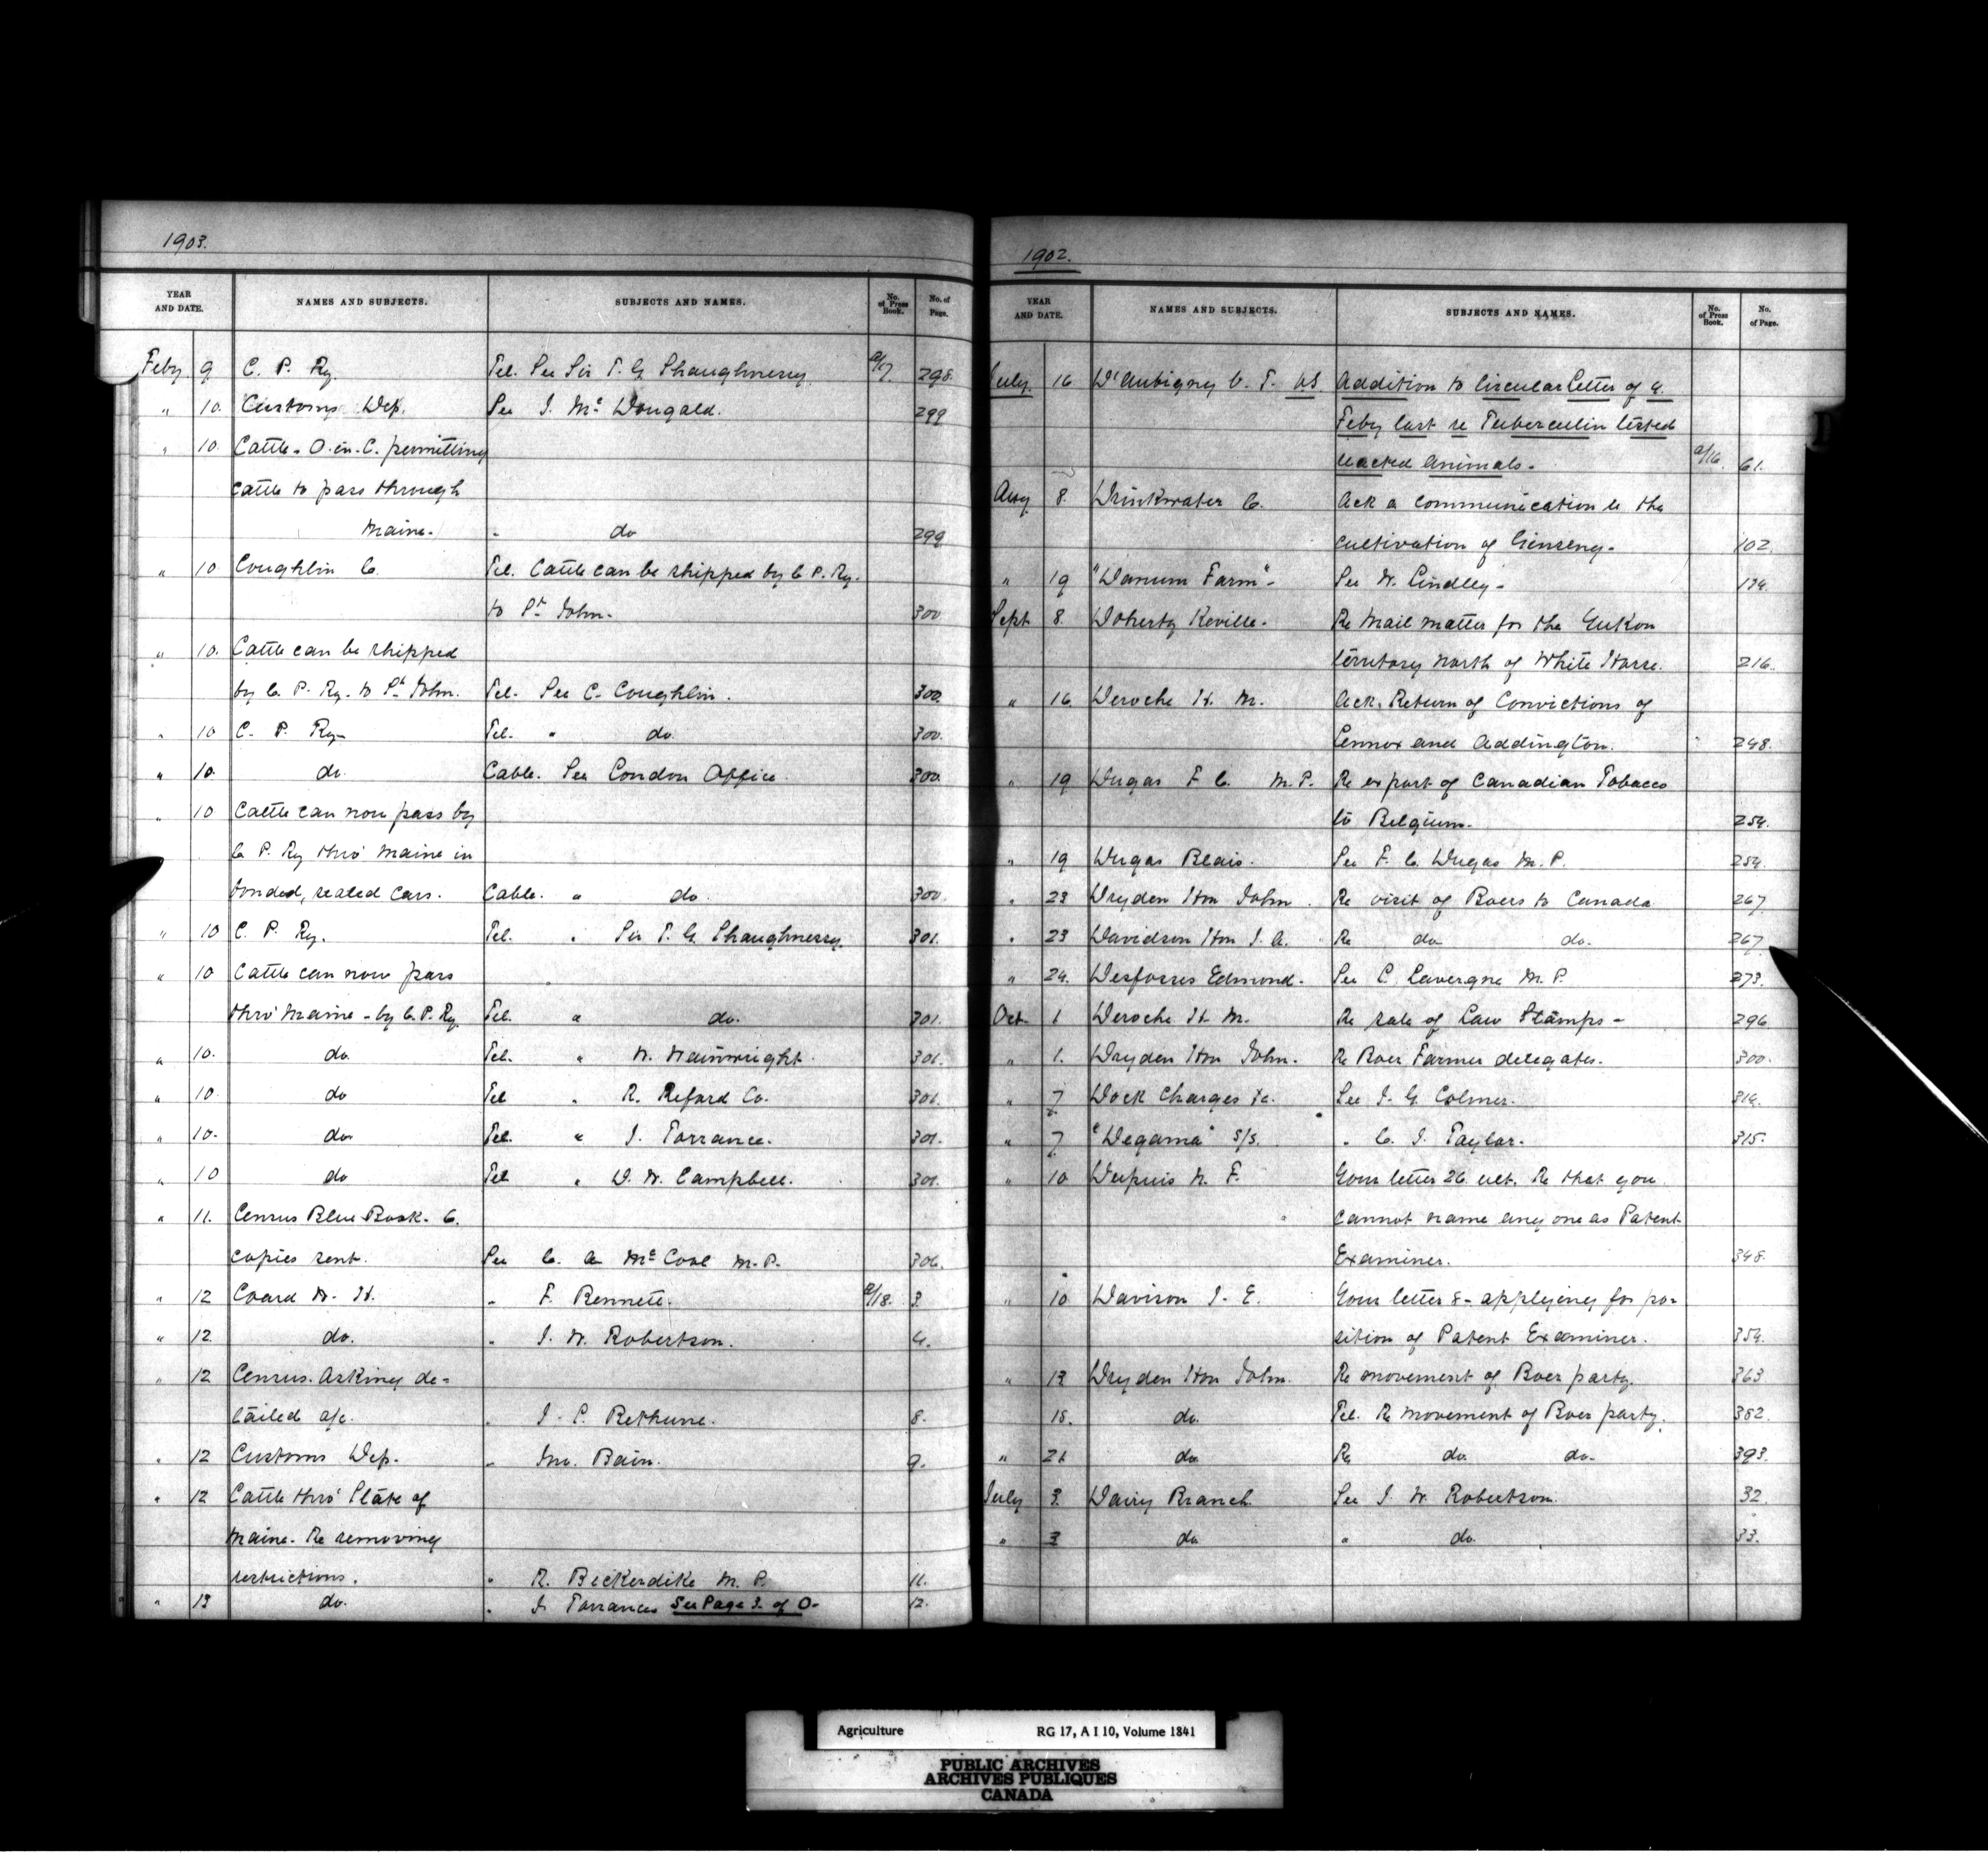 1903.
YEAR AND DATE. NAMES AND SUBJECTS. SUBJECTS AND NAMES. No. of Press Book. No. of Page.
Feby 9 C. P. Ry. Tel. See Sir T. G. Shaughnessy. a/17. 298.
" 10. Customs Dep. See J. McDougald. 299
" 10. Cattle - O-in-C. permitting
cattle to pass through
Maine. " do 299
" 10 Coughlin C. Tel. Cattle can be shipped by C. P. Ry.
to St John. 300
" 10. Cattle can be shipped
by C. P. Ry. to St John. Tel. See C. Coughlin. 300.
" 10 C. P. Ry- Tel. " do. 300.
" 10. do. Cable. See London Office. 300.
" 10 Cattle can now pass by
C. P. Ry thro' Maine in
bonded, sealed cars. Cable. " do. 300
" 10 C. P. Ry. Tel. " Sir T. G. Shaughnessy. 301.
" 10 Cattle can now pass
thro' Maine - by C. P. Ry. Tel. " do. 301.
" 10. do. Tel. " W. Wainwright. 301.
" 10. do Tel " R. Reford Co. 301.
" 10. do. Tel. " J. Torrance. 301.
" 10 do Tel " D. W. Campbell. 301.
" 11. Census Blue Book. 6.
copies sent. See C. A. McCool M.P. 306.
" 12 Coard W. H. " F. Bennett. a/18. 3.
" 12. do. " J. W. Robertson. 4.
" 12 Census. Asking de-
tailed a/c. " J. C. Bethune. 8.
" 12 Customs Dep. " Jno. Bain. 9.
" 12 Cattle thro' State of
Maine. Re removing
restrictions. " R. Bickerdike M. P. 11.
" 13 do. " J. Torrance See Page 3. of O- 12.
1902.
YEAR AND DATE. NAMES AND SUBJECTS. SUBJECTS AND NAMES. No. of Press Book. No. of Page.
July 16 D'Aubigny C. T. VS Addition to Circular Letter of 4
Feby last re Tuberculin tested
reacted animals. a/16. 61.
Aug 8. Drinkwater C. Ack a communication re the
cultivation of Ginseng. 102.
" 19 "Danum Farm". See W. Lindley- 134.
Sept 8. Doherty Keville. Re Mail matter for the Yukon
territory North of White Horse. 216.
" 16 Deroche H. M. Ack. Return of Convictions of
Lennox and Addington. 248.
" 19 Dugas F. C. M.P. Re export of Canadian Tobacco
to Belgium. 254.
" 19 Dugas Blais. See F. C. Dugas M.P. 254.
" 23 Dryden Hon John. Re visit of Boers to Canada 267
" 23 Davidson Hon J. A. Re do do. 267.
" 24. Desfosses Edmond. See L. Lavergne M.P. 273.
Oct. 1 Deroche H. M. Re sale of Law Stamps- 296
" 1. Dryden Hon John. Re Boer Farmer delegates. 300.
" 7 Dock Charges &c. See J. G. Colmer. 314.
" 7 "Degama" S/S. " C. J. Taylor. 315.
" 10 Dupuis N. F. Your letter 26 ult. Re that you
cannot name any one as Patent
Examiner. 348.
" 10 Davison J. E. Your letter 8 - applying for po-
sition of Patent Examiner. 354.
" 13 Dryden Hon John. Re movement of Boer party. 363
18. do. Tel. Re movement of Boer party. 382.
" 21 do Re do. do. 393.
July 3. Dairy Branch. See J. W. Robertson. 32.
" 3 do " do. 33.
D
Agriculture RG 17, A I 10, Volume 1841
PUBLIC ARCHIVES
ARCHIVES PUBLIQUES
CANADA